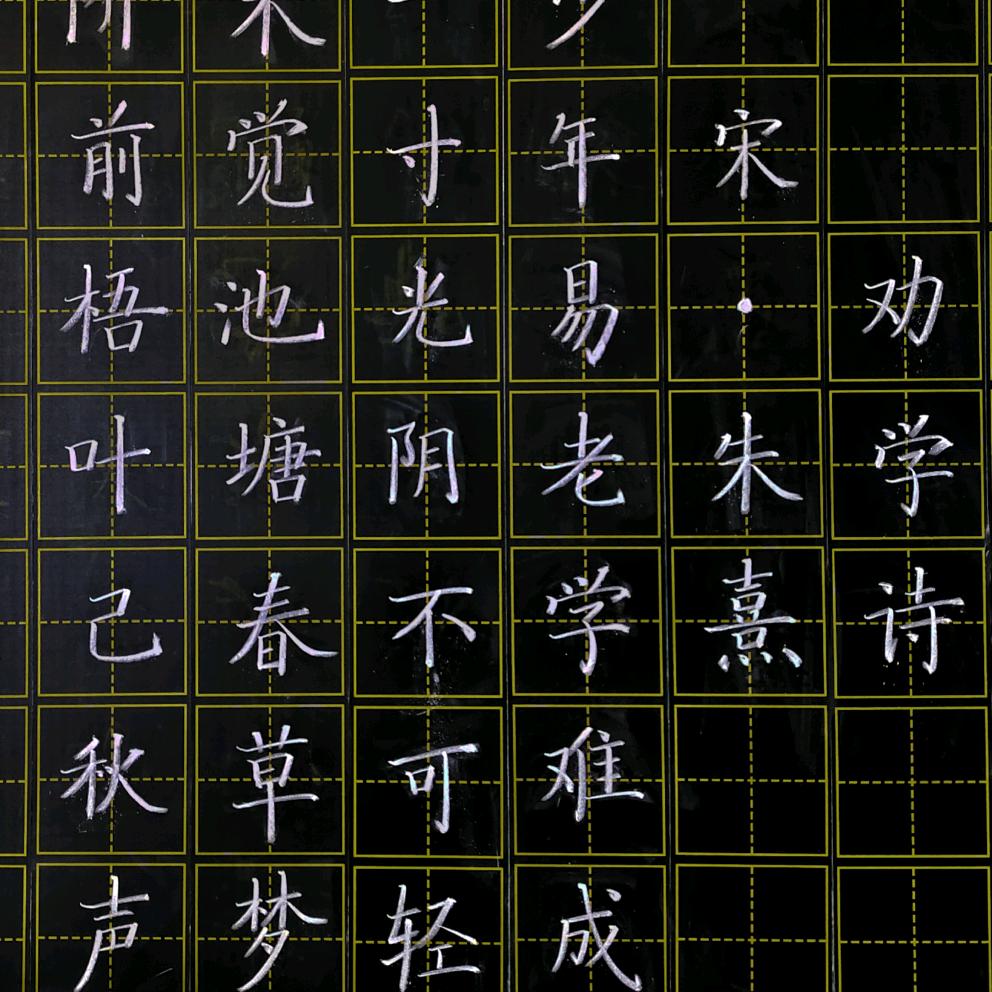 劝学诗
宋·朱熹
年易老学难成
寸光阴不可轻
觉池塘春草梦
前梧叶己秋声